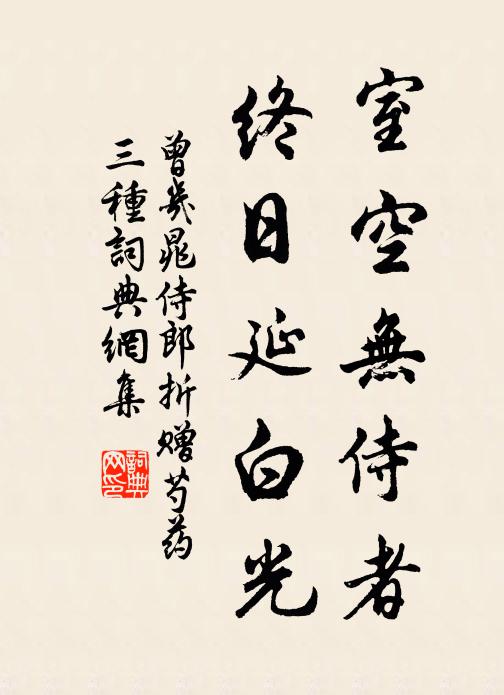 室空無侍者
終日延白光
曾幾晁侍郎折贈芍药
三種詞典網集
詞典
网印